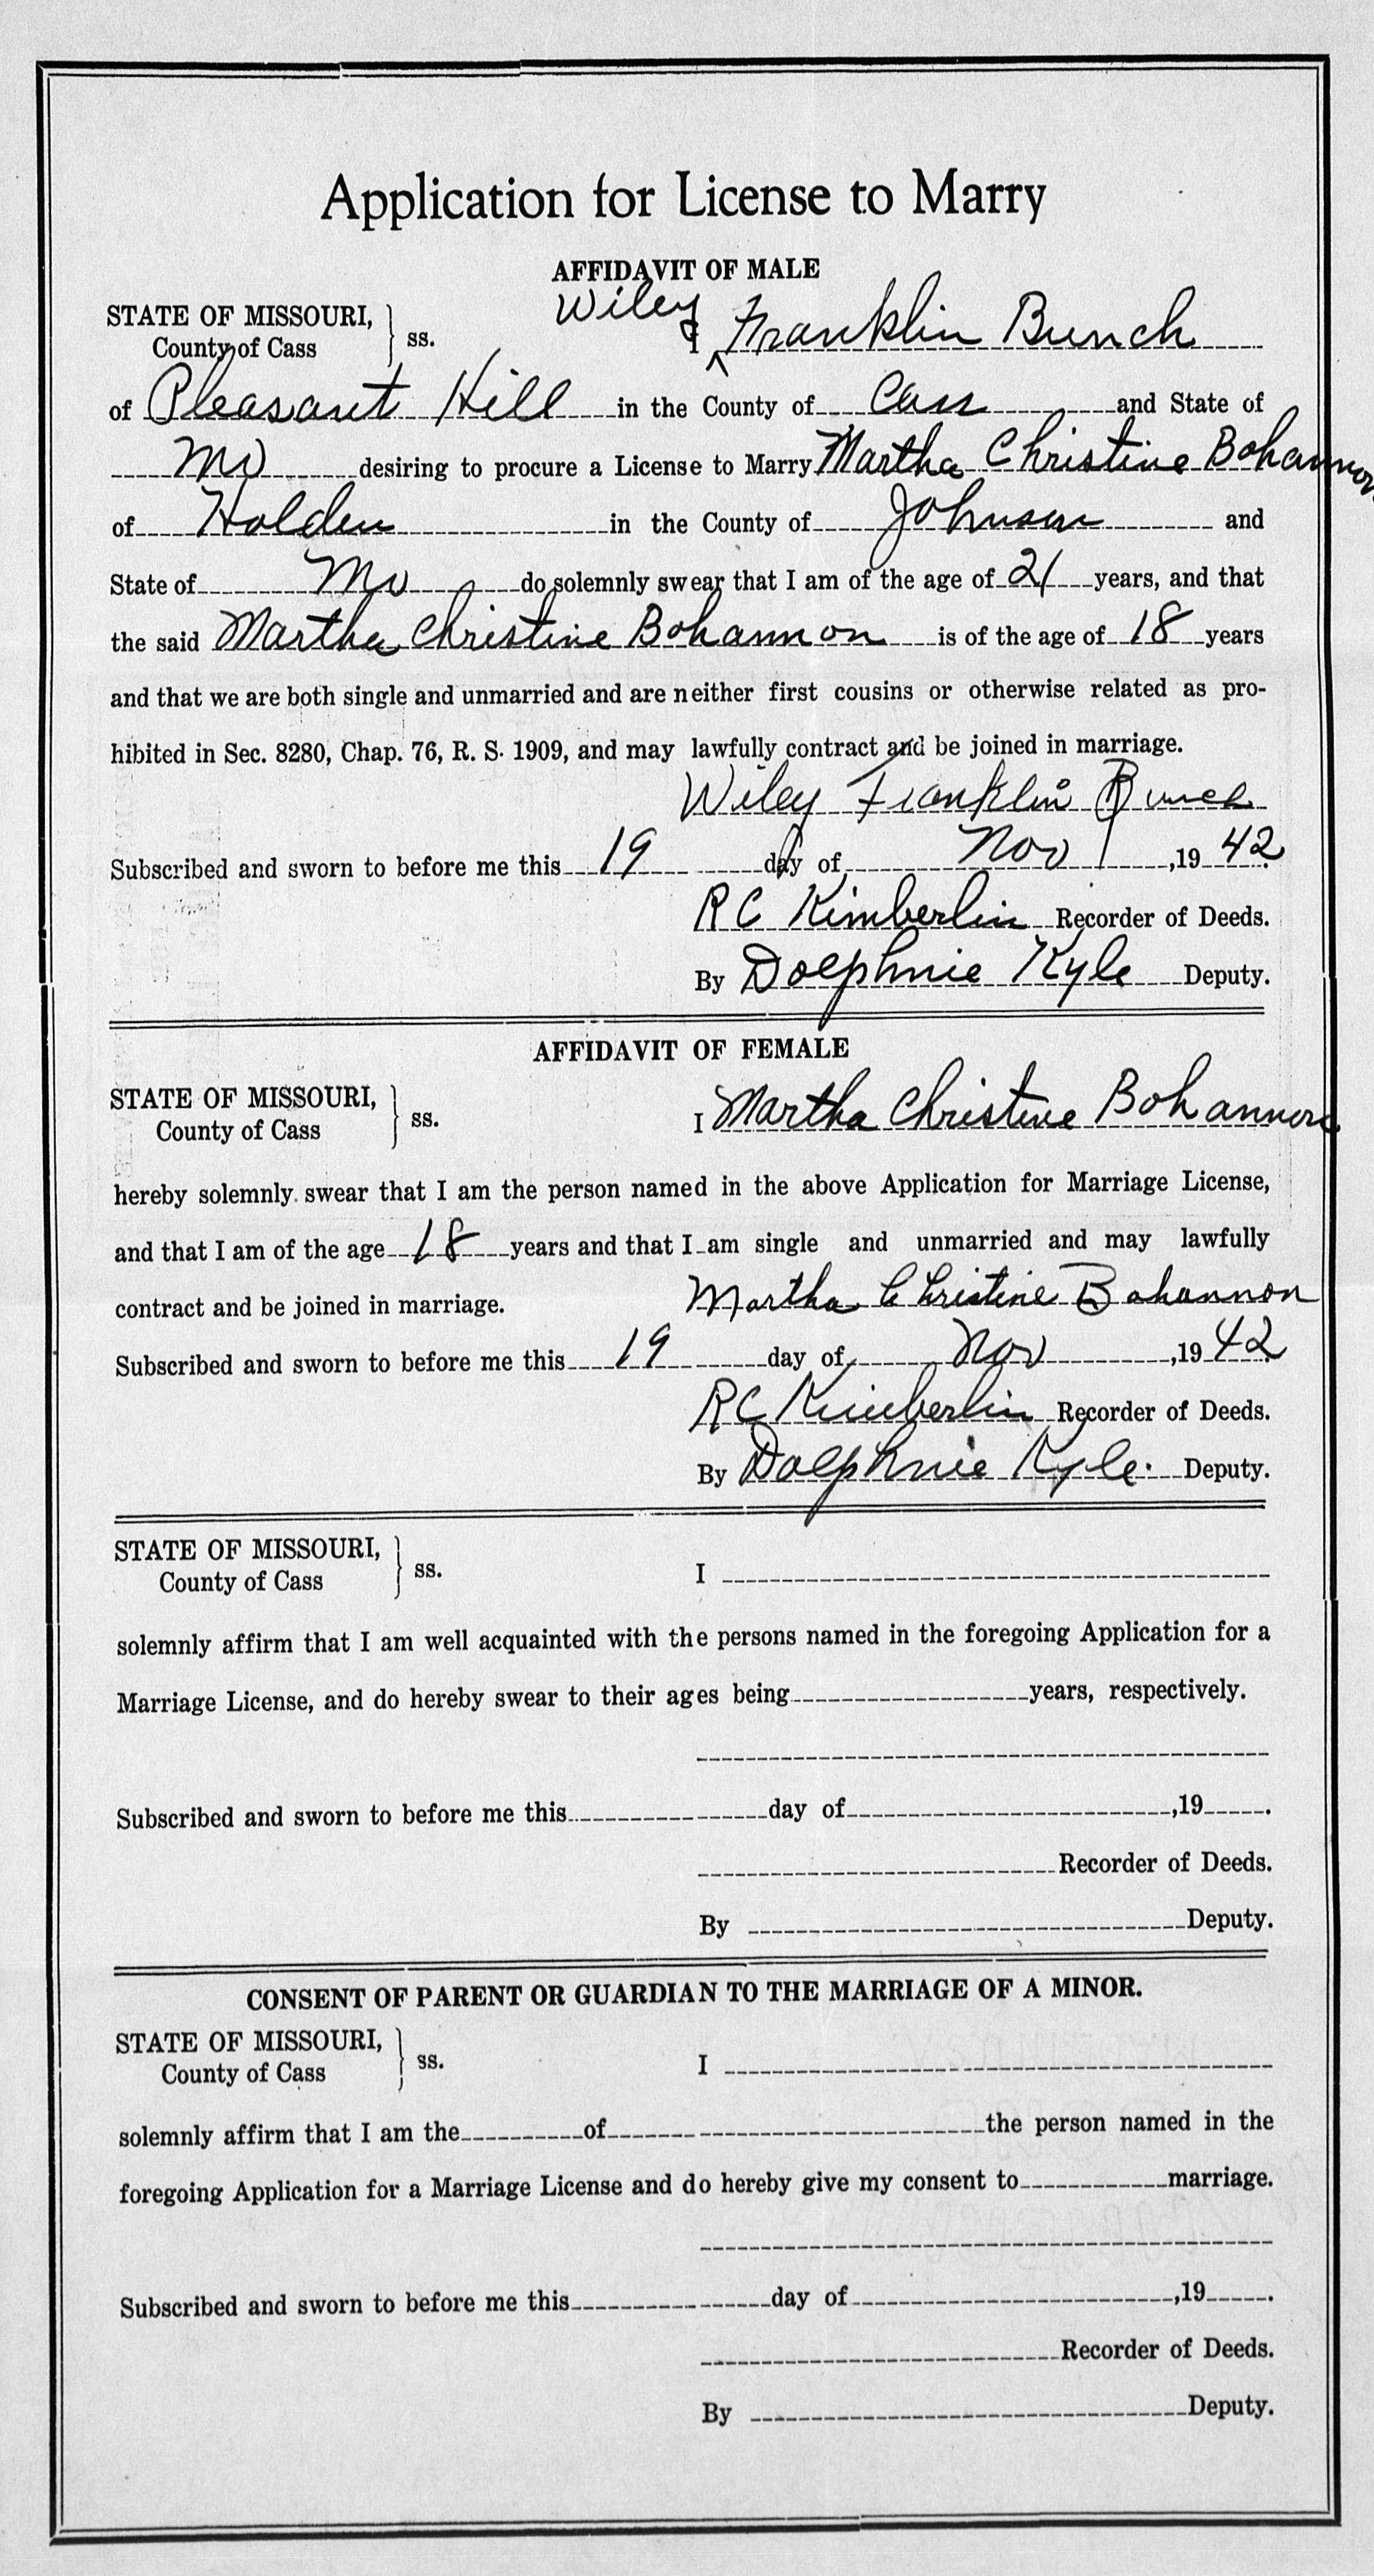 Application for License to Marry
AFFIDAVIT OF MALE
STATE OF MISSOURI,
County of Cass } ss. I Wiley Franklin Bunch
of Pleasant Hill in the County of Cass and State of
Mo desiring to procure a License to Marry Martha Christine Bohannon
of Holden in the County of Johnson and
State of Mo do solemnly swear that I am of the age of 21 years, and that
the said Martha Christine Bohannon is of the age of 18 years
and that we are both single and unmarried and are neither first cousins or otherwise related as pro-
hibited in Sec. 8280, Chap. 76, R. S. 1909, and may lawfully contract and be joined in marriage.
Wiley Franklin Bunch
Subscribed and sworn to before me this 19 day of Nov ,19 42.
R C Kimberlin Recorder of Deeds.
By Dolphnie Kyle Deputy.
AFFIDAVIT OF FEMALE
STATE OF MISSOURI,
County of Cass } ss. I Martha Christine Bohannon
hereby solemnly swear that I am the person named in the above Application for Marriage License,
and that I am of the age 18 years and that I am single and unmarried and may lawfully
contract and be joined in marriage. Martha Christine Bohannon
Subscribed and sworn to before me this 19 day of Nov ,19 42.
R C Kimberlin Recorder of Deeds.
By Dolphnie Kyle Deputy.
STATE OF MISSOURI,
County of Cass } ss. I
solemnly affirm that I am well acquainted with the persons named in the foregoing Application for a
Marriage License, and do hereby swear to their ages being years, respectively.
Subscribed and sworn to before me this day of ,19 .
Recorder of Deeds.
By Deputy.
CONSENT OF PARENT OR GUARDIAN TO THE MARRIAGE OF A MINOR.
STATE OF MISSOURI,
County of Cass } ss. I
solemnly affirm that I am the of the person named in the
foregoing Application for a Marriage License and do hereby give my consent to marriage.
Subscribed and sworn to before me this day of ,19 .
Recorder of Deeds.
By Deputy.